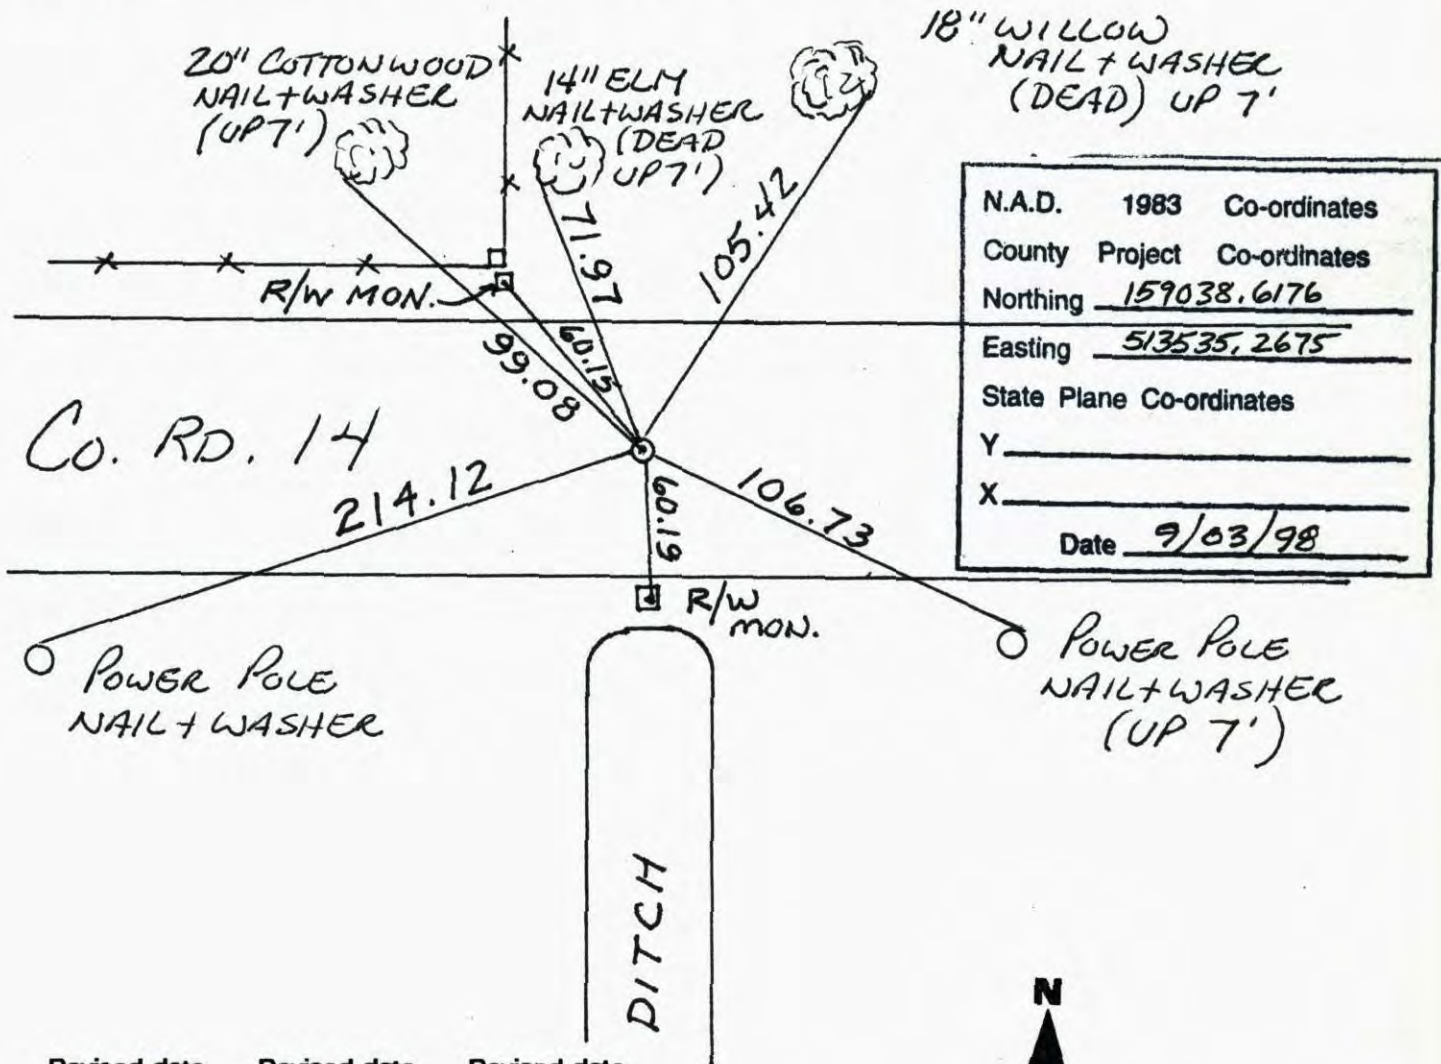 20" COTTONWOOD
NAIL + WASHER
(UP 7')
14" ELM
NAIL + WASHER
(DEAD
UP 7')
18" WILLOW
NAIL + WASHER
(DEAD) UP 7'
N.A.D. 1983 Co-ordinates
County Project Co-ordinates
Northing 159038.6176
Easting 513535.2675
State Plane Co-ordinates
Y
X
Date 9/03/98
R/W MON.
71.97
105.42
60.15
99.08
Co. RD. 14
214.12
60.19
106.73
R/W
MON.
POWER POLE
NAIL + WASHER
POWER POLE
NAIL + WASHER
(UP 7')
DITCH
N
Revised date Revised date Revised date